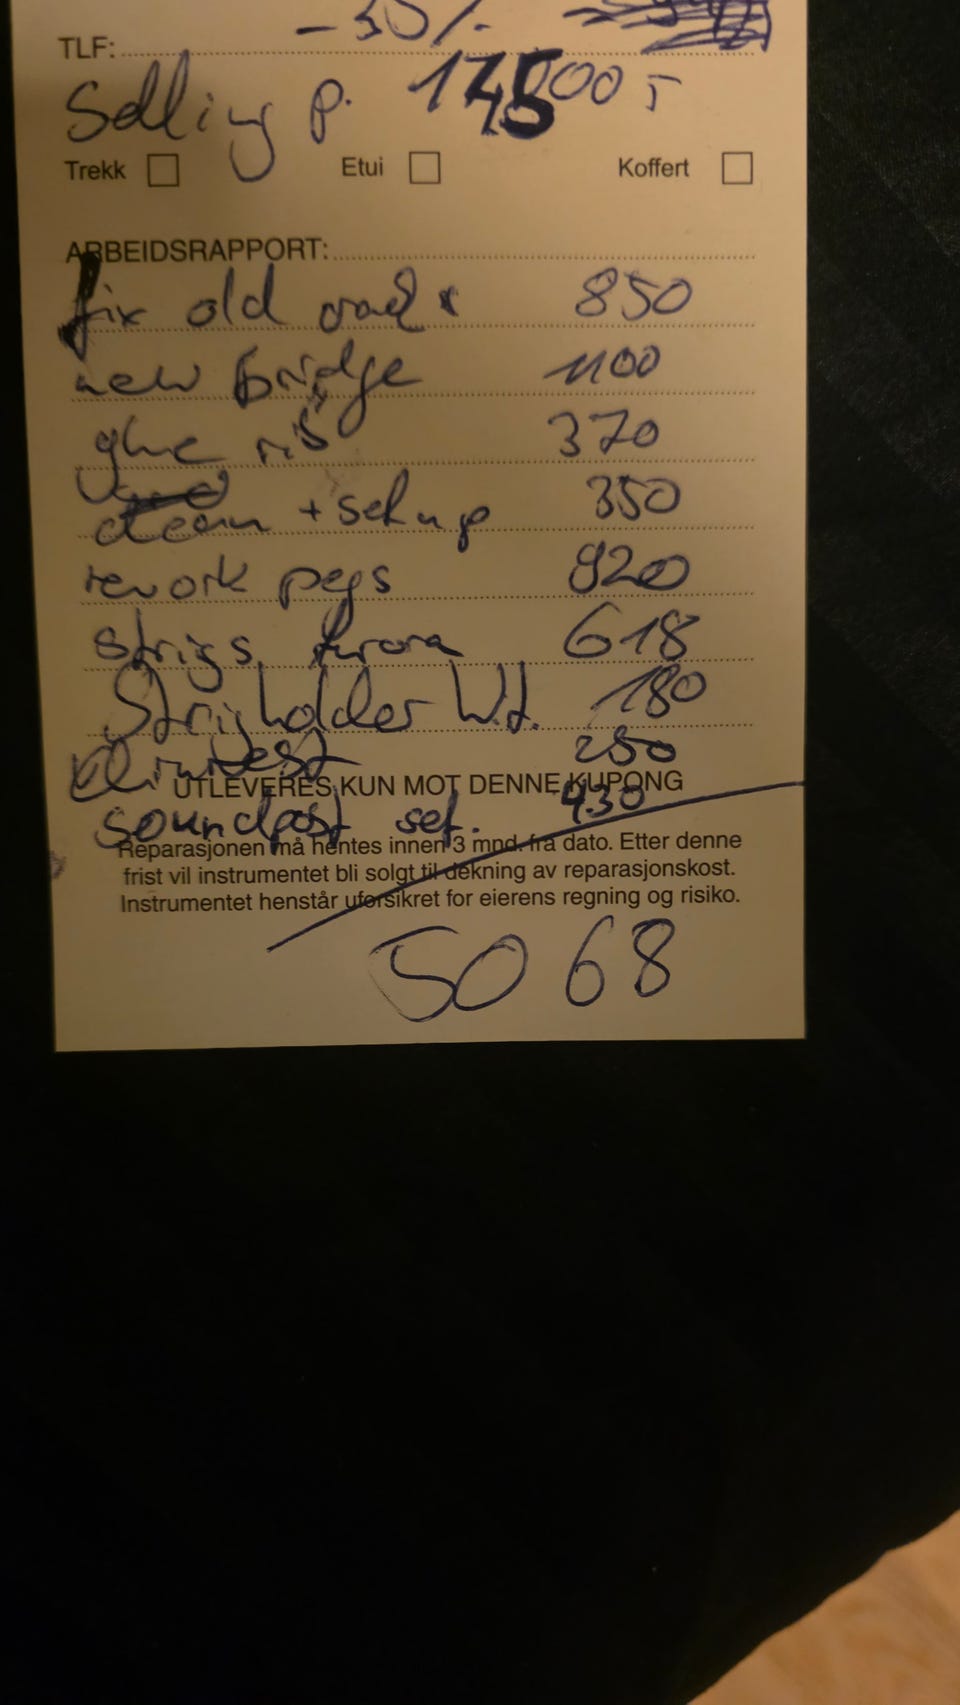 TLF:
Selling p.
Trekk Etui Koffert
ARBEIDSRAPPORT:
fix old cracks 850
new bridge 1100
glue rib 370
clean + setup 350
rework pegs 920
strigs Aurora 618
Strigholder W.t. 180
250
UTLEVERES KUN MOT DENNE KUPONG
soundpost set. 430
Reparasjonen må hentes innen 3 mnd. fra dato. Etter denne
frist vil instrumentet bli solgt til dekning av reparasjonskost.
Instrumentet henstår uforsikret for eierens regning og risiko.
5068